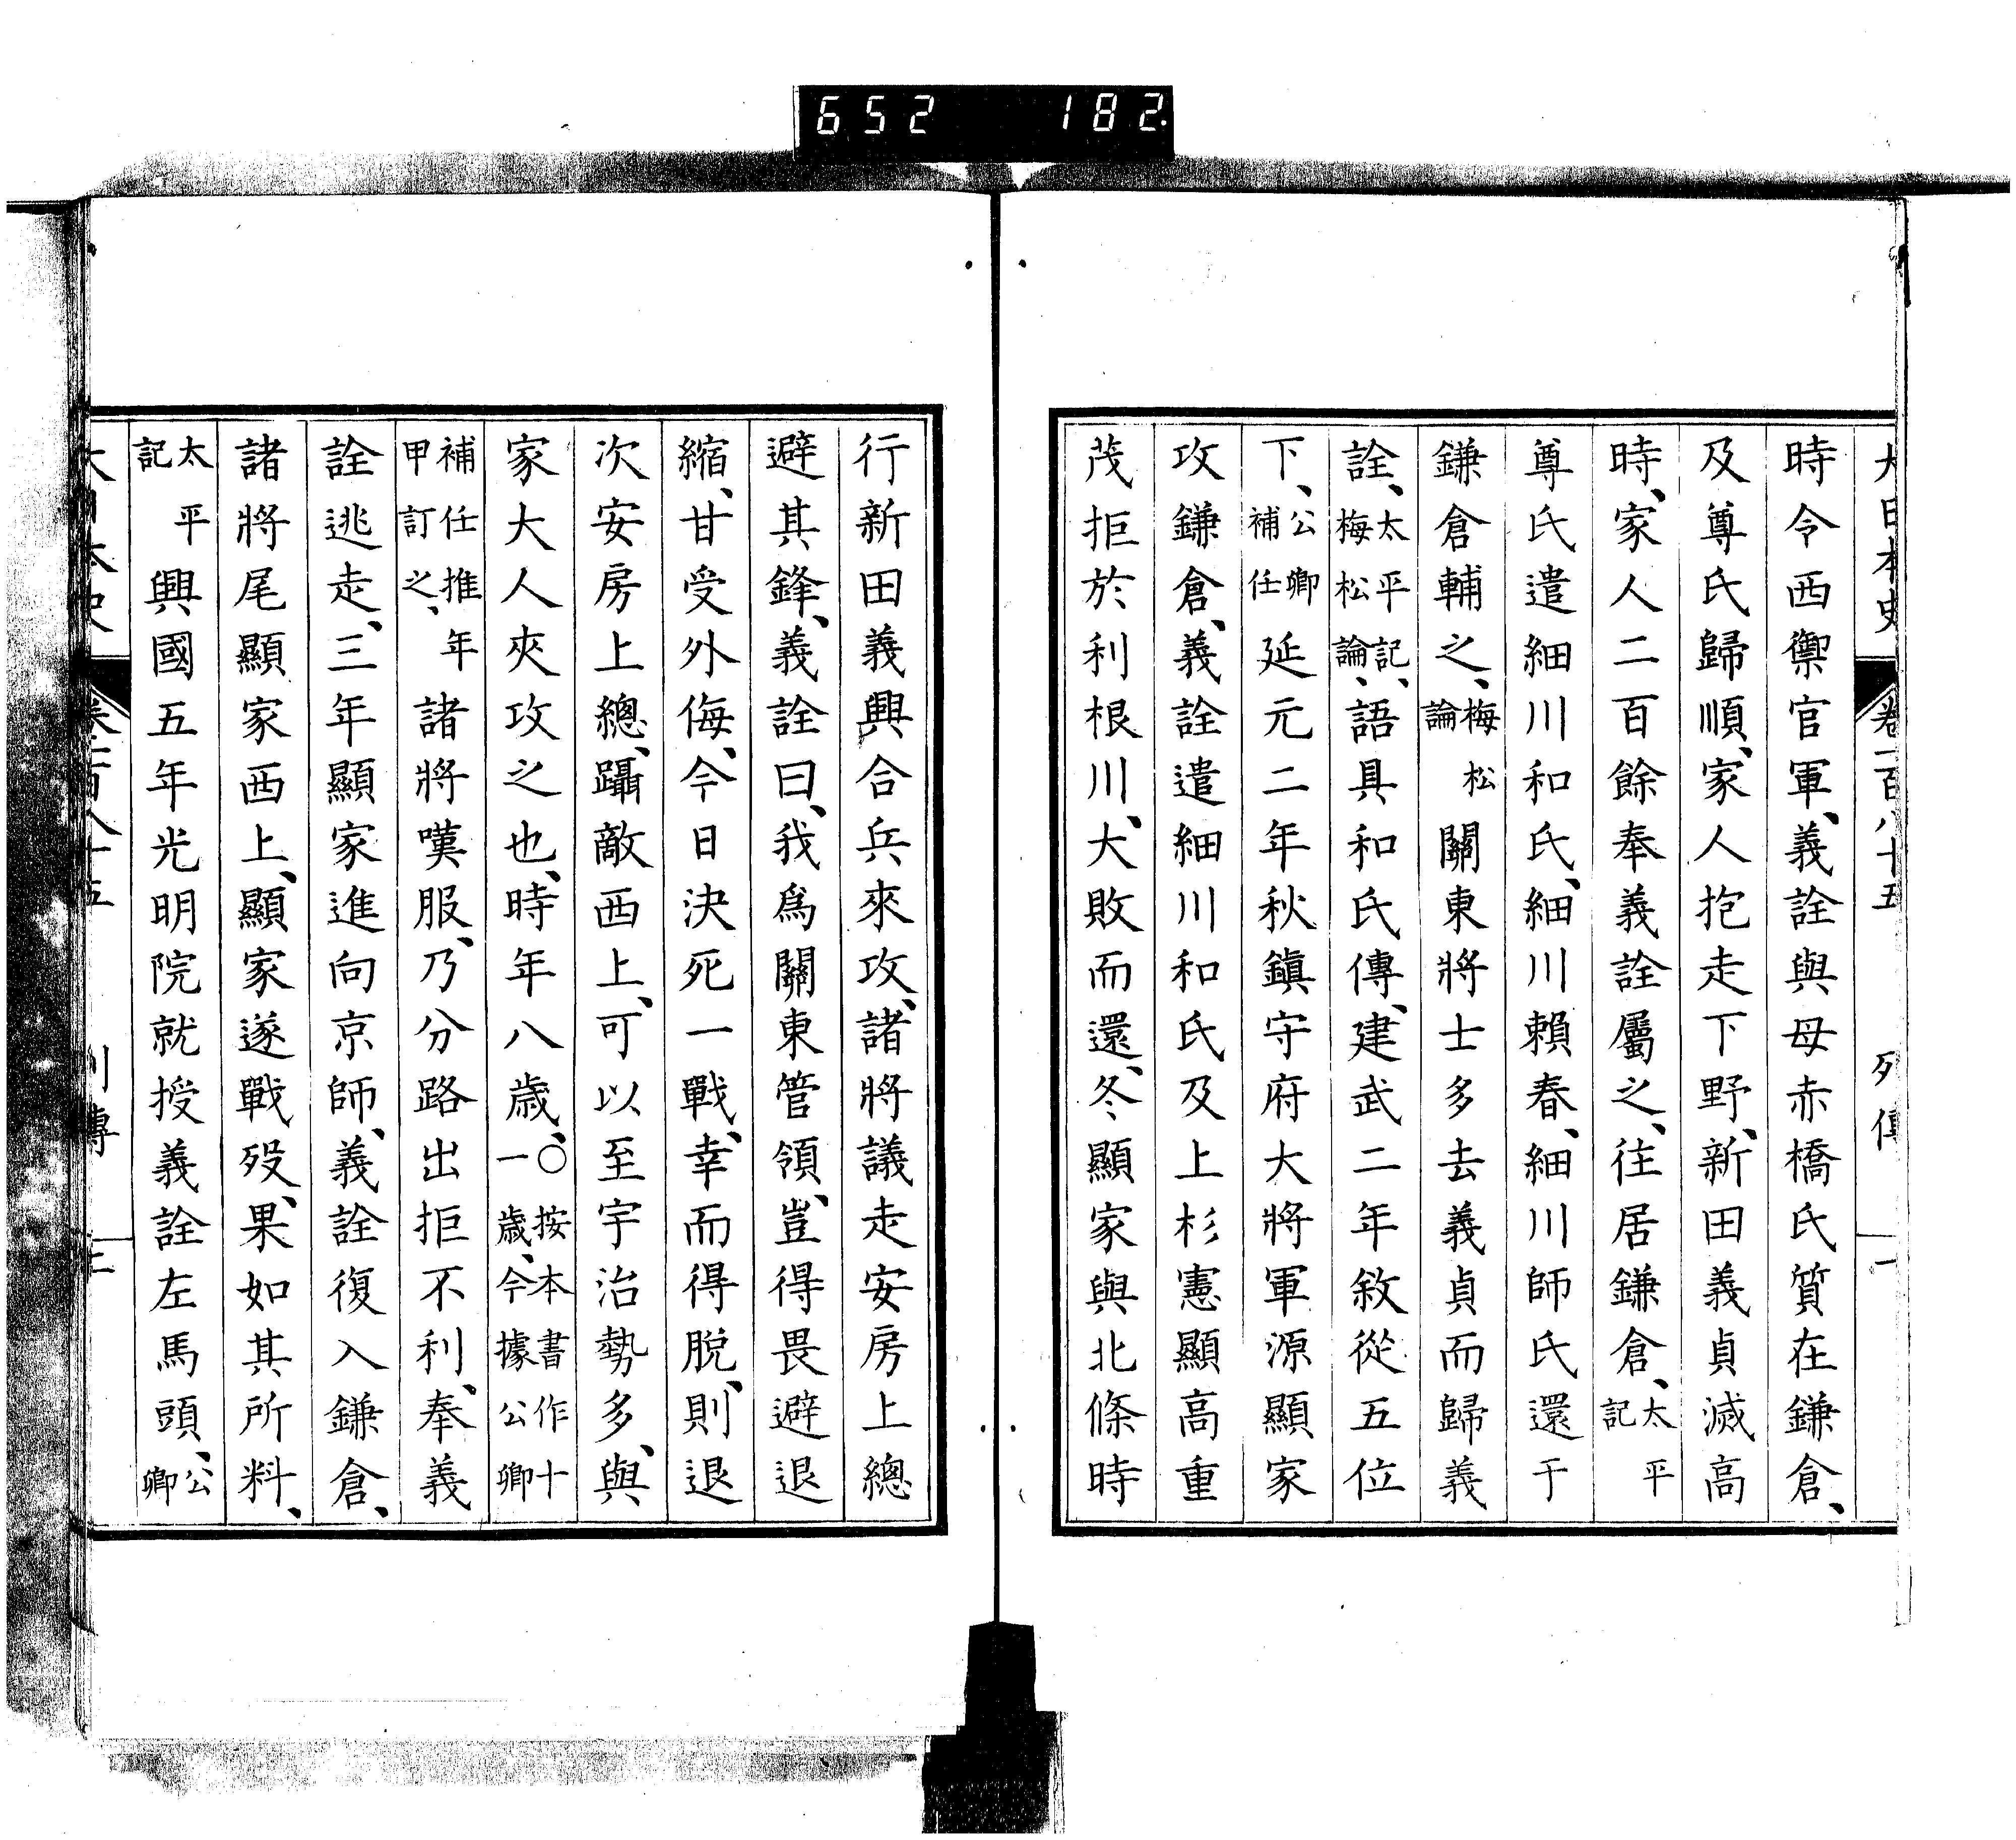 652 182
大日本史 卷一百八十五 列傳 一
時令西禦官軍、義詮與母赤橋氏質在鎌倉、
及尊氏歸順、家人抱走下野、新田義貞滅高
時、家人二百餘奉義詮屬之、往居鎌倉、太平記
尊氏遣細川和氏、細川賴春、細川師氏還于
鎌倉輔之、梅松論 關東將士多去義貞而歸義
詮、太平記、梅松論、語具和氏傳、建武二年敘從五位
下、公卿補任 延元二年秋鎭守府大將軍源顯家
攻鎌倉、義詮遣細川和氏及上杉憲顯高重
茂拒於利根川、大敗而還、冬顯家與北條時
行新田義興合兵來攻、諸將議走安房上總
避其鋒、義詮曰、我爲關東管領、豈得畏避退
縮、甘受外侮、今日決死一戰、幸而得脫、則退
次安房上總、躡敵西上、可以至宇治勢多、與
家大人夾攻之也、時年八歲、〇按本書作十一歲、今據公卿
補任推年甲訂之、諸將嘆服、乃分路出拒不利、奉義
詮逃走、三年顯家進向京師、義詮復入鎌倉、
諸將尾顯家西上、顯家遂戰歿、果如其所料、
太平記 興國五年光明院就授義詮左馬頭、公卿
大日本史 卷一百八十五 列傳 二